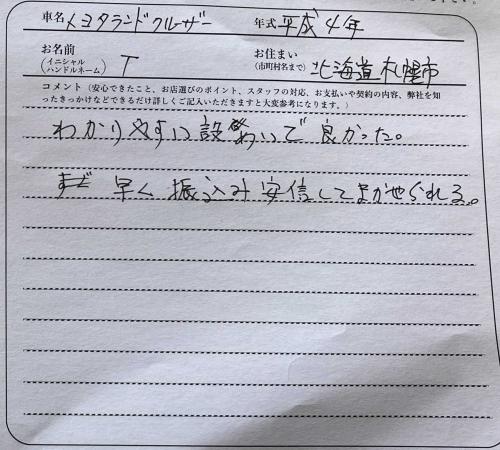 車名 トヨタランドクルーザー 年式 平成4年
お名前 お住まい
(イニシャル ハンドルネーム) T (市町村名まで) 北海道札幌市
コメント(安心できたこと、お店選びのポイント、スタッフの対応、お支払いや契約の内容、弊社を知
ったきっかけなどできるだけ詳しくご記入いただきますと大変参考になります。)
わかりやすい設 で良かった。
早く振込み安信してまかせられる。